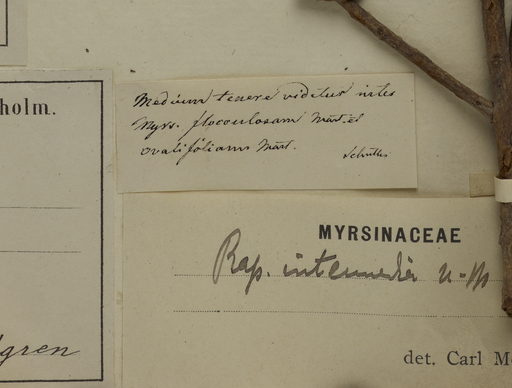 holm.
Medium tenere videtur inter
Myrs. floccolosam Mart. et
ovalifoliam Mart.
MYRSINACEAE
Rap. intermedia n. sp
gren
det. Carl M